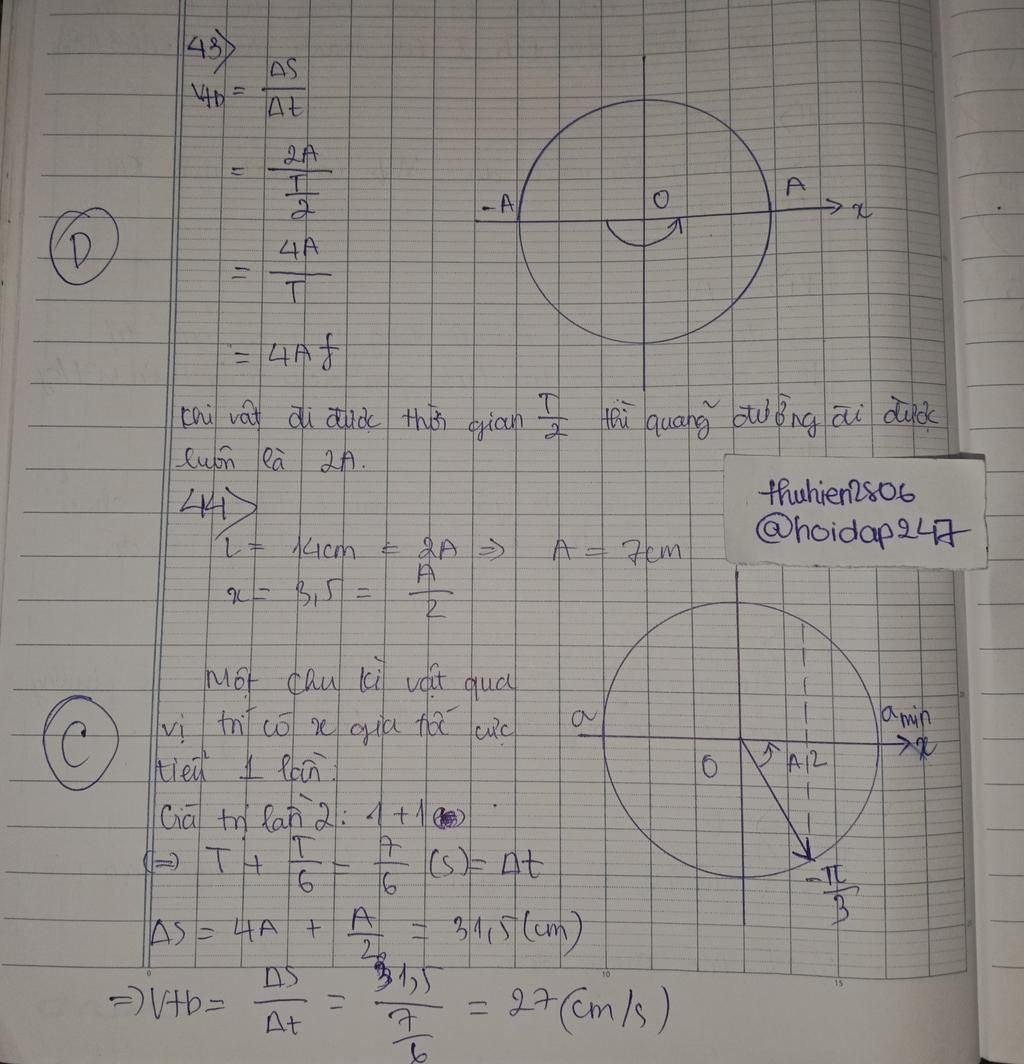 43>
Vtb = ΔS / Δt
= 2A / (T/2)
= 4A / T
= 4A f
-A O A x
D
Khi vật đi được thời gian T/2 thì quãng đường đi được
luôn là 2A.
thuhien2806
@hoidap247
44>
L = 14cm = 2A => A = 7cm
x = 3,5 = A/2
Một chu kì vật qua
vị trí có x gia tốc cực
tiểu 1 lần.
C
a O A/2 amin x
-π/3
Giá trị lần 2: 1+1
(=> T + T/6 = 7/6 (s) = Δt
ΔS = 4A + A/2 = 31,5 (cm)
=> Vtb = ΔS / Δt = 31,5 / (7/6) = 27 (cm/s)
0 10 15